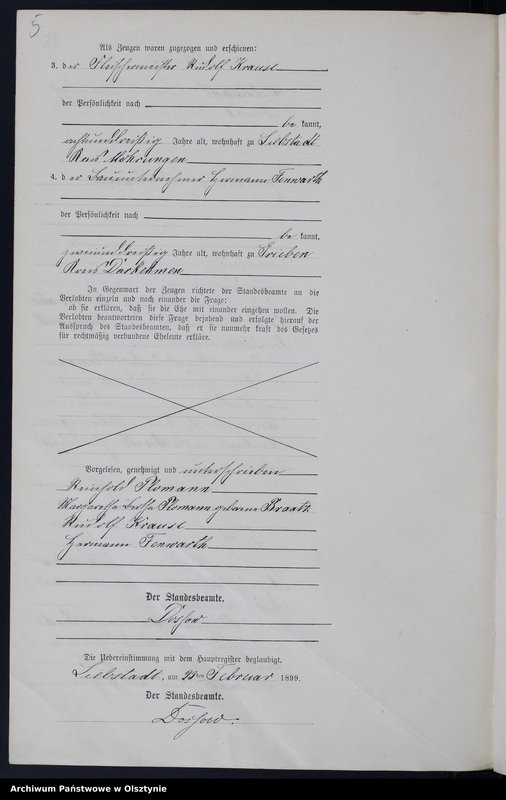 5
Als Zeugen waren zugezogen und erschienen:
3. der Fleischermeister Rudolf Krause
der Persönlichkeit nach
be kannt,
achtunddreißig Jahre alt, wohnhaft zu Liebstadt
Kreis Mohrungen
4. der Bauunternehmer Hermann Fenwarth
der Persönlichkeit nach
be kannt,
zweiunddreißig Jahre alt, wohnhaft zu Grieben
Kreis Darkehmen
In Gegenwart der Zeugen richtete der Standesbeamte an die
Verlobten einzeln und nach einander die Frage:
ob sie erklären, daß sie die Ehe mit einander eingehen wollen. Die
Verlobten beantworteten diese Frage bejahend und erfolgte hierauf der
Ausspruch des Standesbeamten, daß er sie nunmehr kraft des Gesetzes
für rechtmäßig verbundene Eheleute erkläre.
Vorgelesen, genehmigt und unterschrieben
Reinhold Plomann
Margaretha Bertha Plomann geborene
Rudolf Krause
Hermann Fenwarth
Der Standesbeamte.
Dossow
Die Uebereinstimmung mit dem Hauptregister beglaubigt.
Liebstadt, am ten Februar 1899.
Der Standesbeamte.
Dossow.
Archiwum Państwowe w Olsztynie